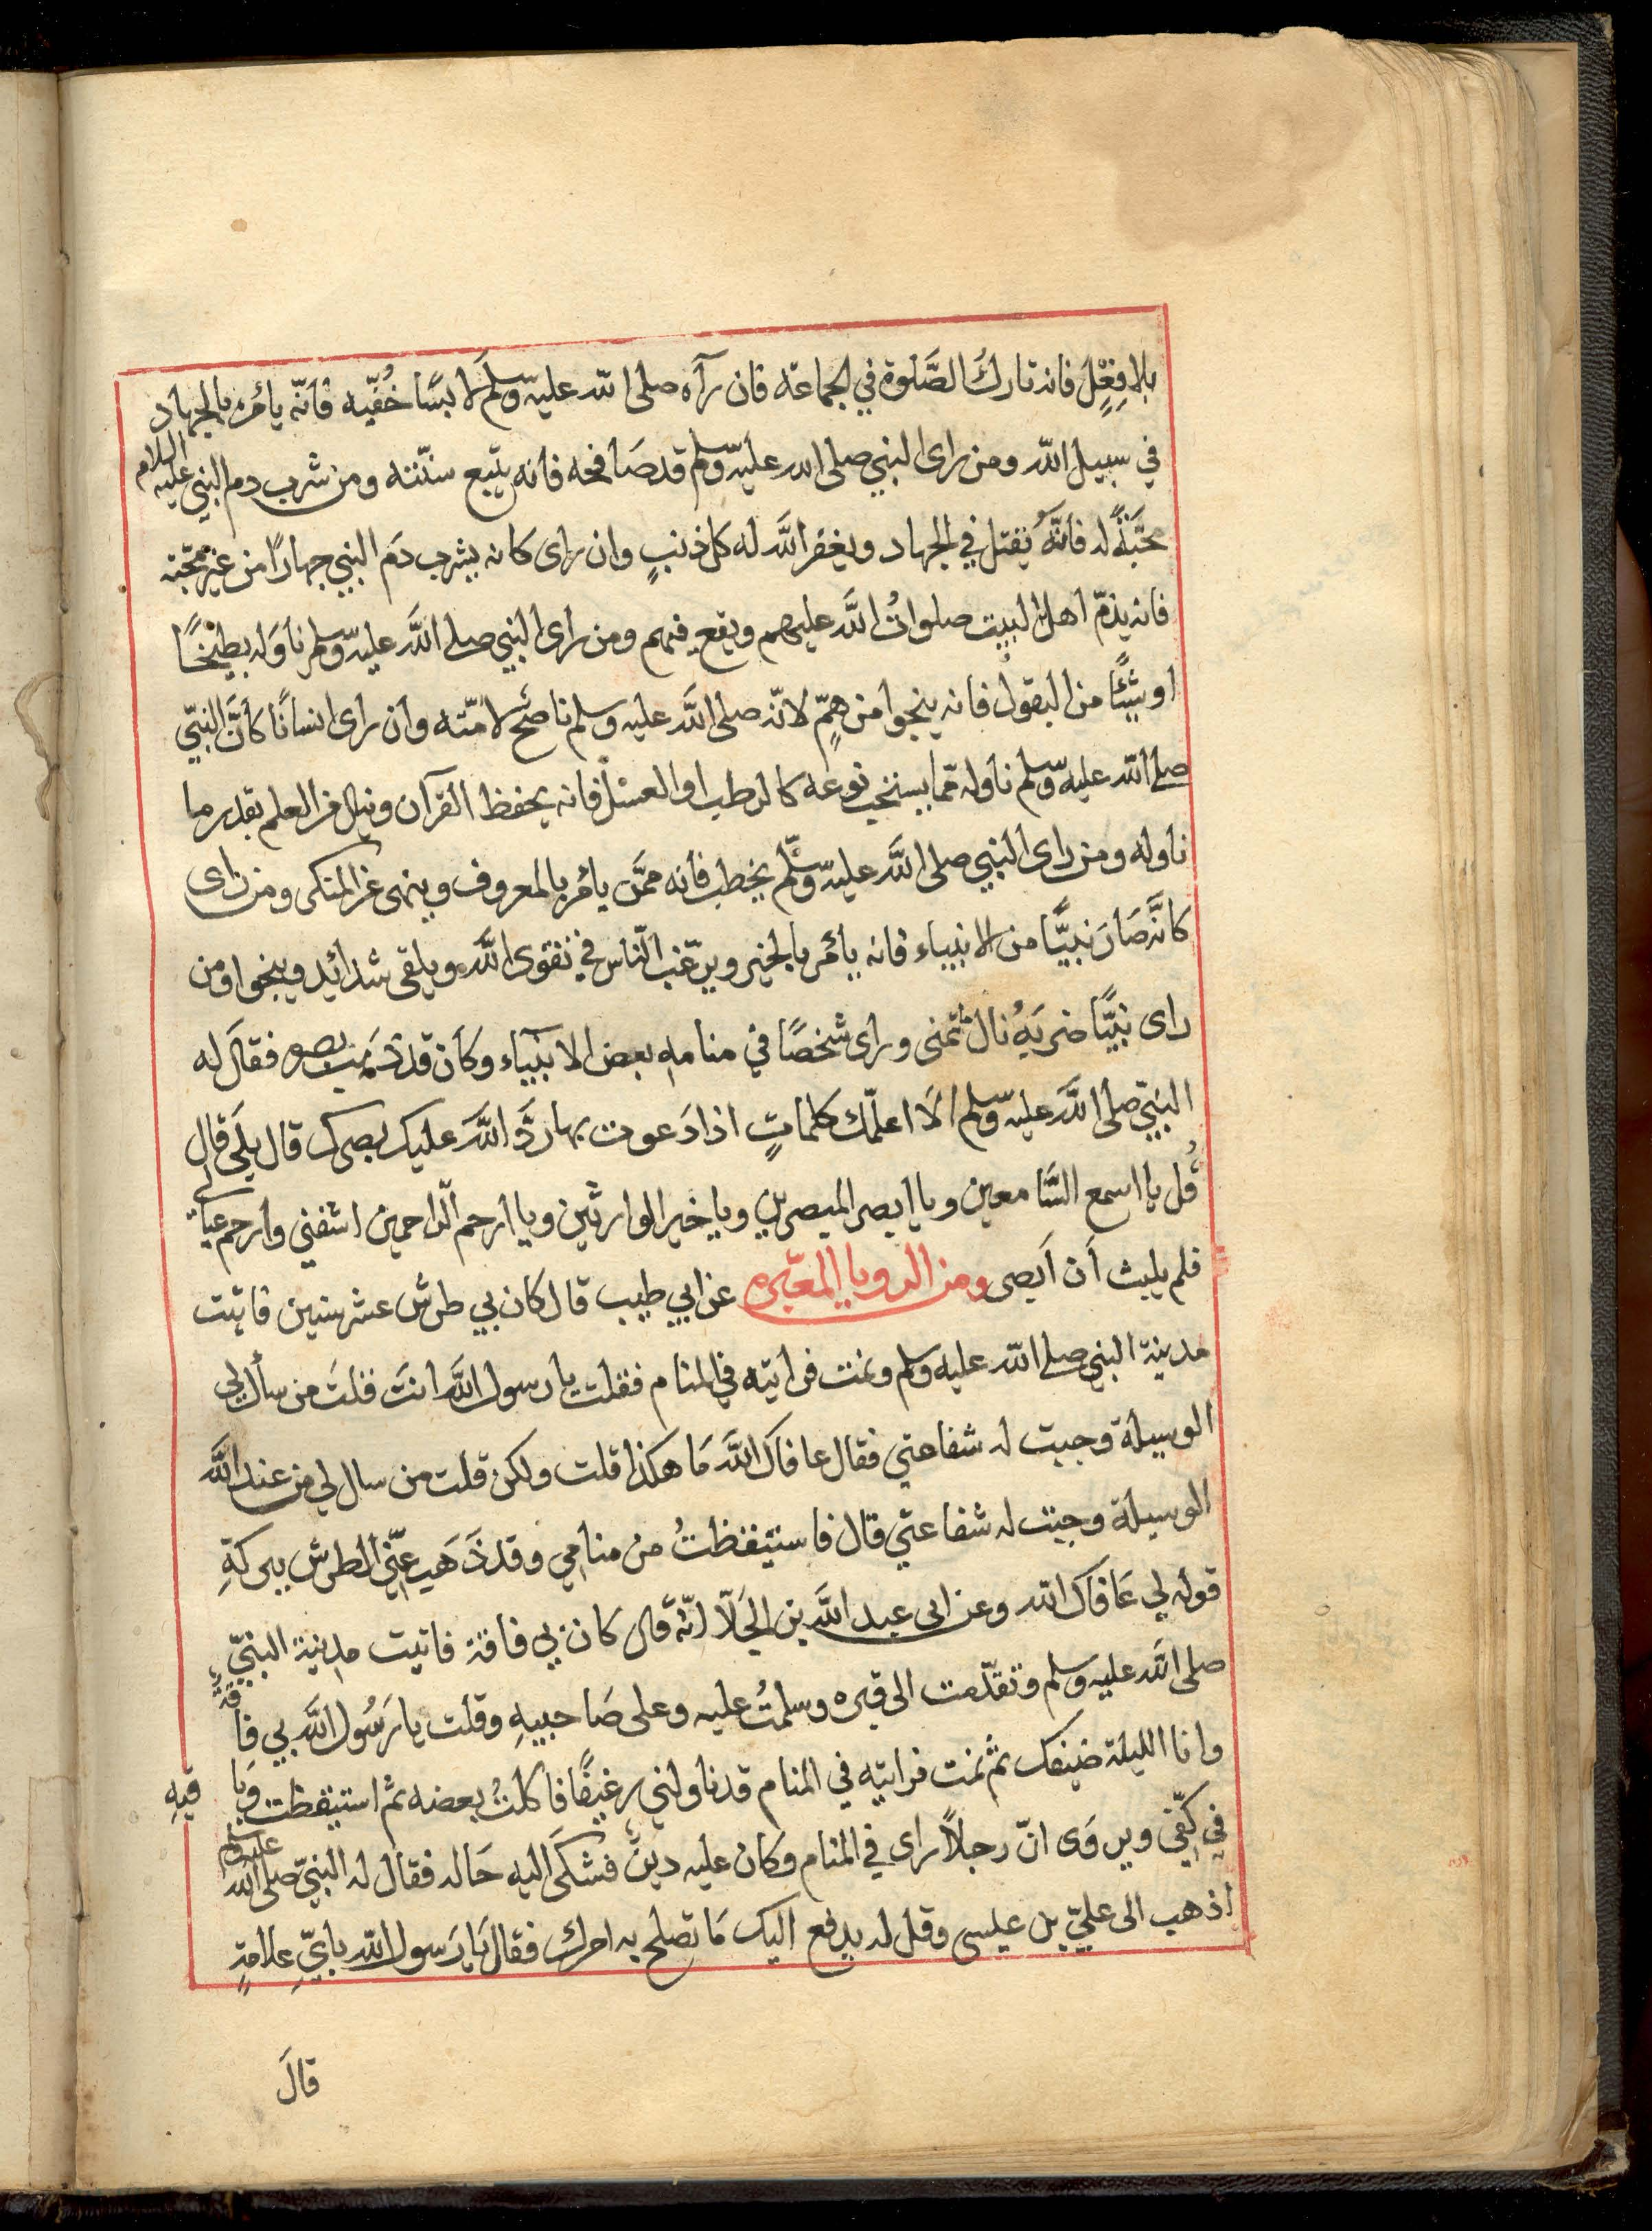 بلا فِعْلٍ فانه تارك الصَّلوة في الجماعة فان رآه صلى الله عليه وسلم لابسًا خُفّيه فانّه يامُره بالجهاد
في سبيل الله ومن راى النبي صلى الله عليه وسلم قد صَافحه فانه يتبع سنّته ومن شرب دم النبي عليه السلام
محَبّةً له فانّه يُقتل في الجهاد ويغفر الله له كل ذنبٍ وان راى كانه يشرب دَم النبي جهارًا من غير محبّته
فانه يذمّ اهل البيت صلواتُ الله عليهم ويقع فيهم ومن راى النبي صلى الله عليه وسلم ناوَله بطيخًا
او شيئًا من البقول فانه ينجوا من همٍّ لانّه صلى الله عليه وسلم ناصحُ لامّته وان راى انسانًا كأنَّ النبيّ
صلى الله عليه وسلم ناوله ممّا يستحب نوعه كالرطب او العسل فانه يحفظ القرآن وينال من العلم بقدر ما
ناوله ومن راى النبي صلى الله عليه وسلم يخطب فانه ممَّن يامُر بالمعروف وينهى عن المنكر ومن راى
كانَّه صَارَ نبيًّا من الانبياء فانه يامُر بالخير ويرغّب النّاس في تقوى الله ويلقى شدائد وينجوا ومن
راى نبيًّا ضربَهُ نال ما تمنى وراى شخصًا في منامهِ بعض الانبيآء وكان قد ذهَب بصره فقال له
النبيّ صلى الله عليه وسلم الَا اعلّمك كلماتٍ اذا دَعوت بها ردَّ الله عليك بصرك قال بلَى قال
قُل يا اسمع السَّامعين ويا ابصر المبصرين ويا خير الوارثين ويا ارحم الرّاحمين اشفني وارحم
فلم يلبث أن اَبصر ومن الرويا المعتبره عن ابي طيب قال كان بي طرش عشر سنين فاتيت
مدينة النبي صلى الله عليه وسلم ونمت فرايته في المنام فقلت يا رسول الله انتَ قلتَ من سأل لي
الوسيلة وجبت له شفاعتي فقال عافاك الله مَا هكذا قلت ولكن قلت من سال لي من عند الله
الوسيلة وجبت له شفاعتي قال فاستيقظتُ من منامي وقد ذَهَب عنّي الطرش ببركةِ
قوله لي عَافاك الله وعن ابي عبد الله بن الجَلّا انّه قال كان بي فاقة فاتيت مدينة النبيّ
صلى الله عليه وسلم وتقدّمت الى قبره وسلمتُ عليه وعلى صَاحبيهِ وقلت يا رَسُول الله بي فاقةٌ
وانا الليلة ضيفك ثم نمت فرايته في المنام قد ناولني رغيفًا فاكلتُ بعضه ثم استيقظت وبا قيهِ
في كفّي ويروَى انّ رجلاً راى في المنام وكان عليه دينٌ فشكَى اليه حَاله فقال له النبيّ صلى الله عليه وسلم
اذهب الى عليّ بن عيسى وقل له يدفع اليك مَا تصلح به امرك فقال يَا رَسول الله بايِّ علامةٍ
قالَ